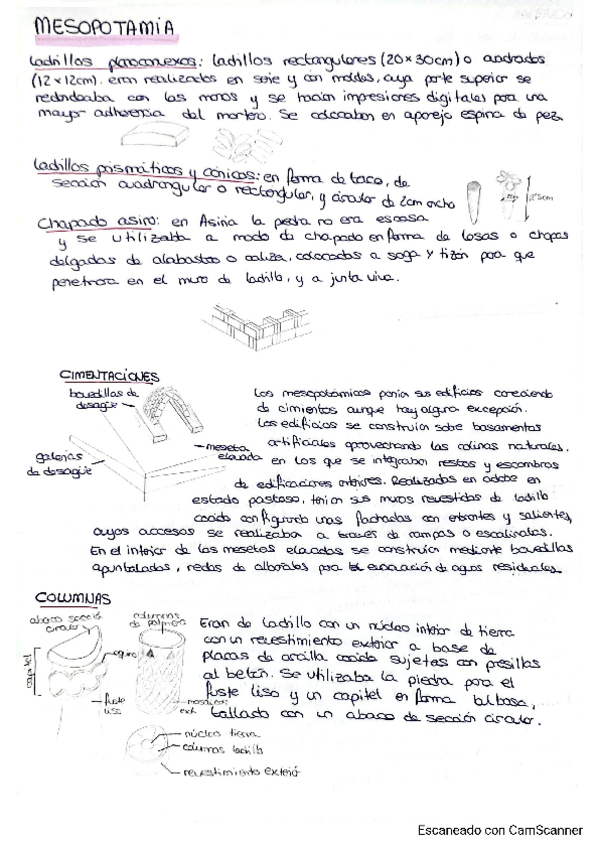 MESOPOTAMIA
Ladrillos planoconvexos: ladrillos rectangulares (20x30cm) o cuadrados
(12x12cm). eran realizados en serie y con moldes, cuya parte superior se
redondeaba con las manos y se hacían impresiones digitales para una
mayor adherencia del mortero. Se colocaban en aparejo espina de pez.
Ladrillos prismáticos y cónicos: en forma de taco, de
sección cuadrangular o rectangular, y circular de 2cm ancho
Chapado asirio: en Asiria la piedra no era escasa
y se utilizaba a modo de chapado en forma de losas o chapas
delgadas de alabastro o caliza, colocados a soga y tizón para que
penetrara en el muro de ladrillo, y a junta viva.
CIMENTACIONES
bovedillas de
desagüe
galerias
de desagüe
meseta
elevada
Los mesopotámicos ponía sus edificios careciendo
de cimientos aunque hay alguna excepción.
Los edificios se construía sobre basamentos
artificiales aprovechando las colinas naturales.
en los que se integraban restos y escombros
de edificaciones anteriores. Realizadas en adobe en
estado pastoso, tenían sus muros revestidos de ladrillo
cocido configurando unas fachadas con entrantes y salientes,
cuyos accesos se realizaban a través de rampas o escalinatas.
En el interior de las mesetas elevadas se construía mediante bovedillas
apuntaladas, redes de albañales para la evacuación de aguas residuales
COLUMNAS
abaco secció
circular
columnas
de palmera
capitel
espiral
fuste
liso
mosaicos
nucleo tierra
columnas ladrillo
revestimiento exterió
Eran de ladrillo con un núcleo interior de tierra
con un revestimiento exterior a base de
placas de arcilla cocida sujetas con presillas
al betún. Se utilizaba la piedra para el
fuste liso y un capitel en forma bulbosa,
tallado con un abaco de sección circular.
Escaneado con CamScanner